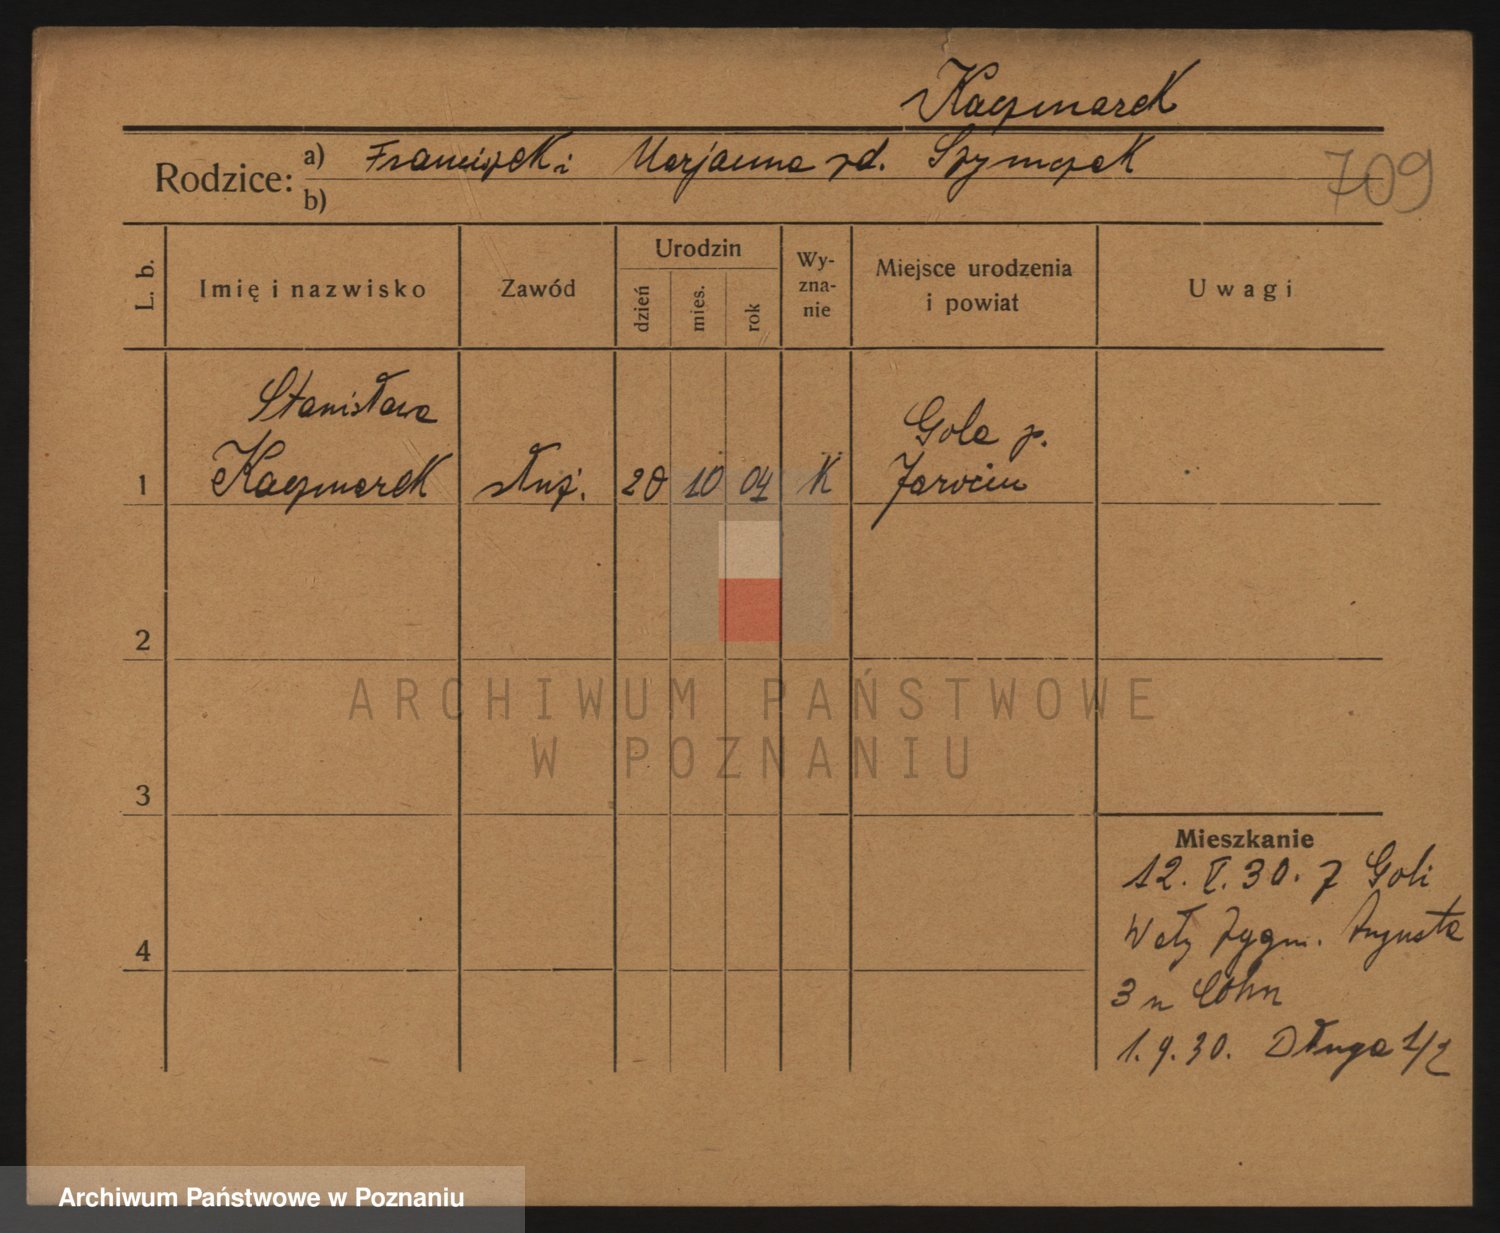 Kaczmarek
Rodzice: a) Franciszek i Marjanna zd. Szymczak
b)
709
L. b.
Imię i nazwisko
Zawód
Urodzin
dzień
mies.
rok
Wy-
zna-
nie
Miejsce urodzenia
i powiat
Uwagi
Stanisława
Gola p.
1 Kaczmarek służ. 20 10 04 K Jarocin
2
3
4
Mieszkanie
12. V. 30. z Goli
Wały Zygm. Augusta
3 u Cohn
1. 9. 30. Długa 1/2
ARCHIWUM PAŃSTWOWE
W POZNANIU
Archiwum Państwowe w Poznaniu